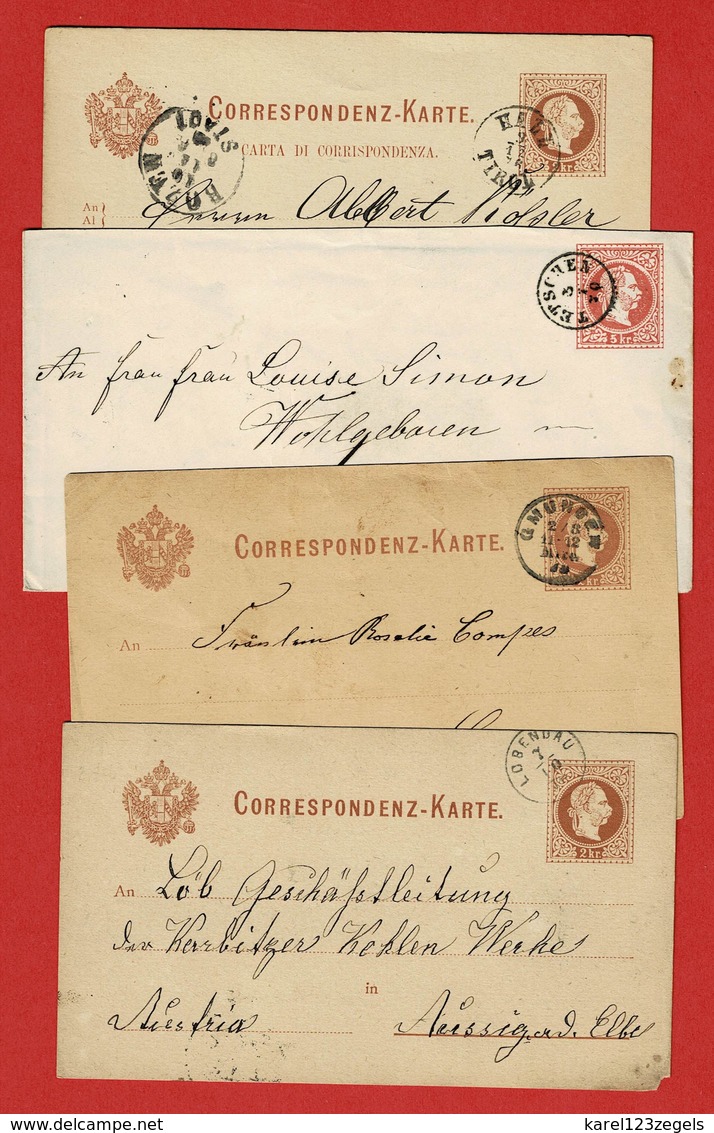 CORRESPONDENZ-KARTE.
CARTA DI CORRISPONDENZA.
BOZEN STADT
HALL
TIROL
2 kr.
An
Al
Herrn Albert Köhsler
TETSCHEN
5 kr.
An Frau Frau Louise Simon
Wohlgeboren
CORRESPONDENZ-KARTE.
GMUNDEN
An Fräulein Rosalie Compes
LOBENDAU
CORRESPONDENZ-KARTE.
2 kr.
An Löb Geschäftsleitung
der Karbitzer Kohlen Werke
in
Austria Aussig a. d. Elbe
delcampe.net
karel123zegels